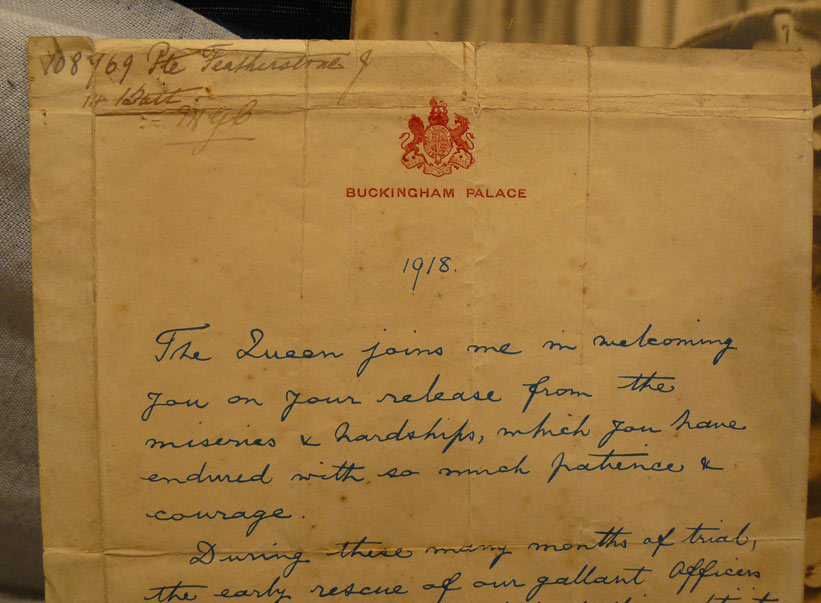 108769 Pte Featherstone J
14 Batt
M G C
BUCKINGHAM PALACE
1918.
The Queen joins me in welcoming
you on your release from the
miseries & hardships, which you have
endured with so much patience &
courage.
During these many months of trial,
the early rescue of our gallant Officers
7